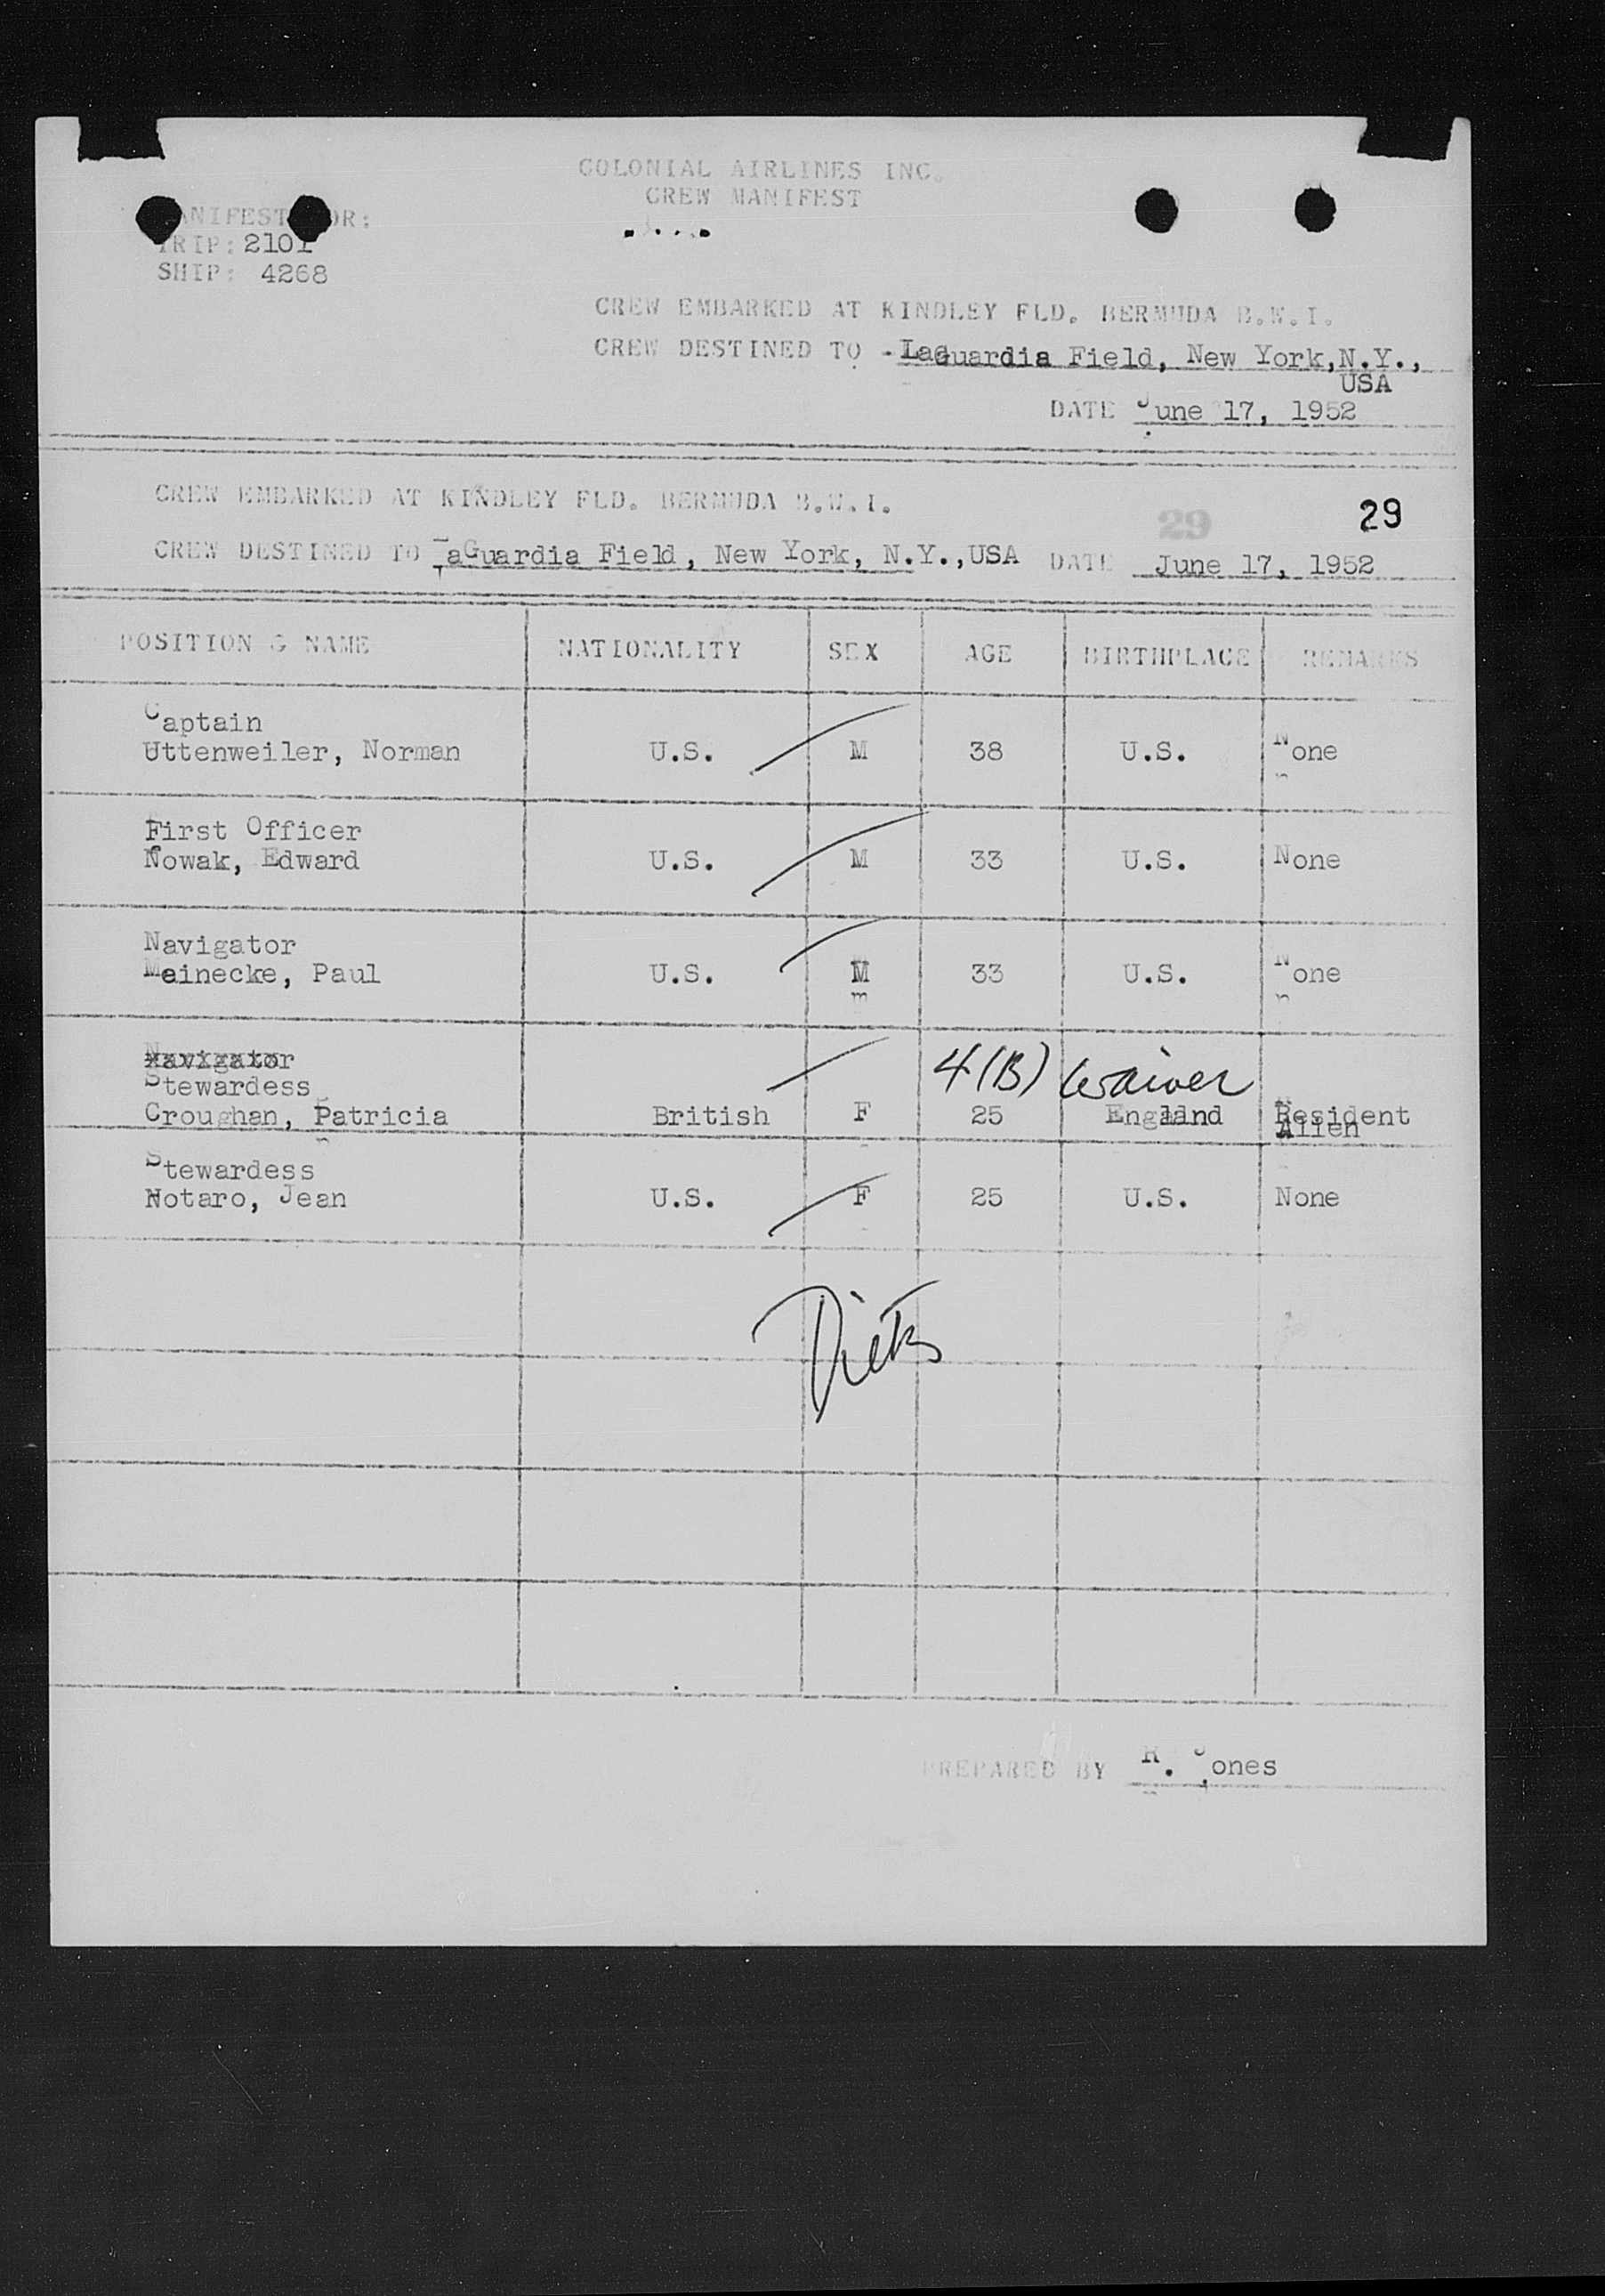 COLONIAL AIRLINES INC.
CREW MANIFEST
MANIFEST FOR:
TRIP: 2101
SHIP: 4268
CREW EMBARKED AT KINDLEY FLD. BERMUDA B.W.I.
CREW DESTINED TO - LaGuardia Field, New York, N.Y.,
USA
DATE June 17, 1952
CREW EMBARKED AT KINDLEY FLD. BERMUDA B.W.I.
29 29
CREW DESTINED TO LaGuardia Field, New York, N.Y., USA DATE June 17, 1952
POSITION & NAME NATIONALITY SEX AGE BIRTHPLACE REMARKS
Captain
Uttenweiler, Norman U.S. M 38 U.S. None
First Officer
Nowak, Edward U.S. M 33 U.S. None
Navigator
Meinecke, Paul U.S. M 33 U.S. None
Navigator
4(B) Waiver
Stewardess
Croughan, Patricia British F 25 England Resident
Alien
Stewardess
Notaro, Jean U.S. F 25 U.S. None
PREPARED BY R. Jones